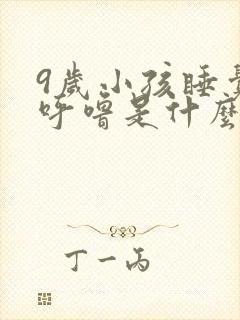 9歲小孩睡覺
呼嚕是什麼
丁一丙